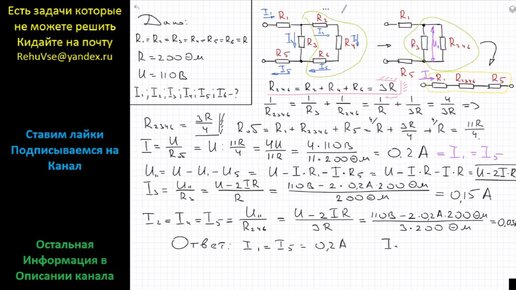 Есть задачи которые
не можете решить
Кидайте на почту
RehuVse@yandex.ru
Ставим лайки
Подписываемся на
Канал
Остальная
Информация в
Описании канала
Дано:
R₁=R₂=R₃=R₄=R₅=R₆=R
R=200 Ом
U=110В
I₁; I₂; I₃; I₄; I₅; I₆-?
I₁ R₁ R₂
I₃ R₃ R₄ I₄
R₅ R₆
I₅
R₁
R₃ R₂₄₆
R₅
R₁ R₂₃₄₆ R₅
R₂₄₆ = R₂ + R₄ + R₆ = 3R
1/R₂₃₄₆ = 1/R₃ + 1/R₂₄₆ = 1/R + 1/3R = 4/3R =>
R₂₃₄₆ = 3R/4
R₁ + R₂₃₄₆ + R₅ = R + 3R/4 + R = 11R/4
= U : 11R/4 = 4U/11R = 4·110В/11·200Ом = 0.2 А = I₁ = I₅
= U - U₁ - U₅ = U - I·R₁ - I·R₅ = U - I·R - I·R = U-2IR
I₃ = = U-2IR/R = 110В - 2·0.2А·200Ом/200Ом = 0,15 А
= U-2IR/3R = 110В-2·0.2А·200Ом/3·200Ом
Ответ: I₁ = I₅ = 0,2А I